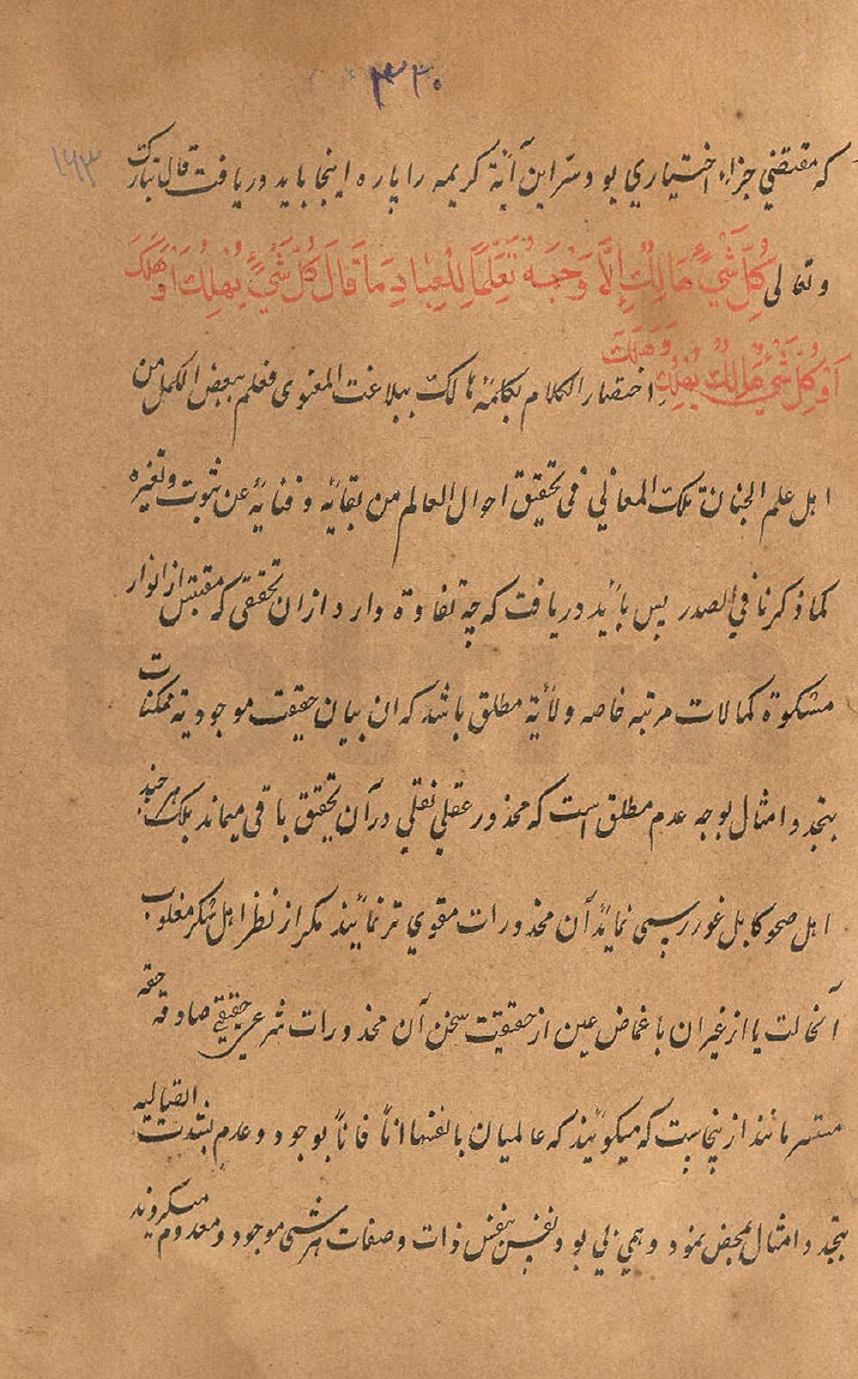 ٣٣٠
١٦٣
که مقتضی جزاء اختیاری بود سرّ این آیۀ کریمه را پاره اینجا باید دریافت قال تبارک
و تعالی کُلُّ شَیْءٍ هَالِکٌ إِلَّا وَجْهَهُ تَعَلُّمًا لِلْعِبَادِ مَا قَالَ کُلُّ شَیْءٍ یُهْلِكُ اَوْ هَلَكَ
اَوْ کُلُّ شَیْءٍ هَالِكٌ یُهْلِكُ وَهَلَكَ اختصار الکلام بکلمۀ هالک ببلاغت المعنوی فعلم ببعض الکمل من
اهل علم الجنان تلک المعانی فی تحقیق احوال العالم من بقایه و فنایه عن ثبوت و تغیره
کما ذکرنا فی الصدر پس بائید دریافت که چه تفاوة دارد ازان تحققی که مقتبس از انوار
مشکوة کمالات مرتبه خاصه ولایة مطلق باشد که ان بیان حقیقت موجودیة ممکنات
بتجدد امثال بوجه عدم مطلق است که محذور عقلی نقلی در آن تحقیق باقی میماند بلک هر چند
اهل صحو کامل غور رسی نمایند آن محذورات مقوی تر نمائیند مکر از نظر اهل سکر مغلوب
آنحالت یا از غیران باغماض عین از حقیقت سخن آن محذورات شرعی حقیقی صادقه حقه
مستتر مانند ازینجاست که میکوئیند که عالمیان بانفسها اناً فاناً بوجود و عدم بتبدت القیالیه
بتجدد امثال بمحض نمود وهمی بی بود بنفس ذات و صفات هر شی موجود و معدوم میکروند